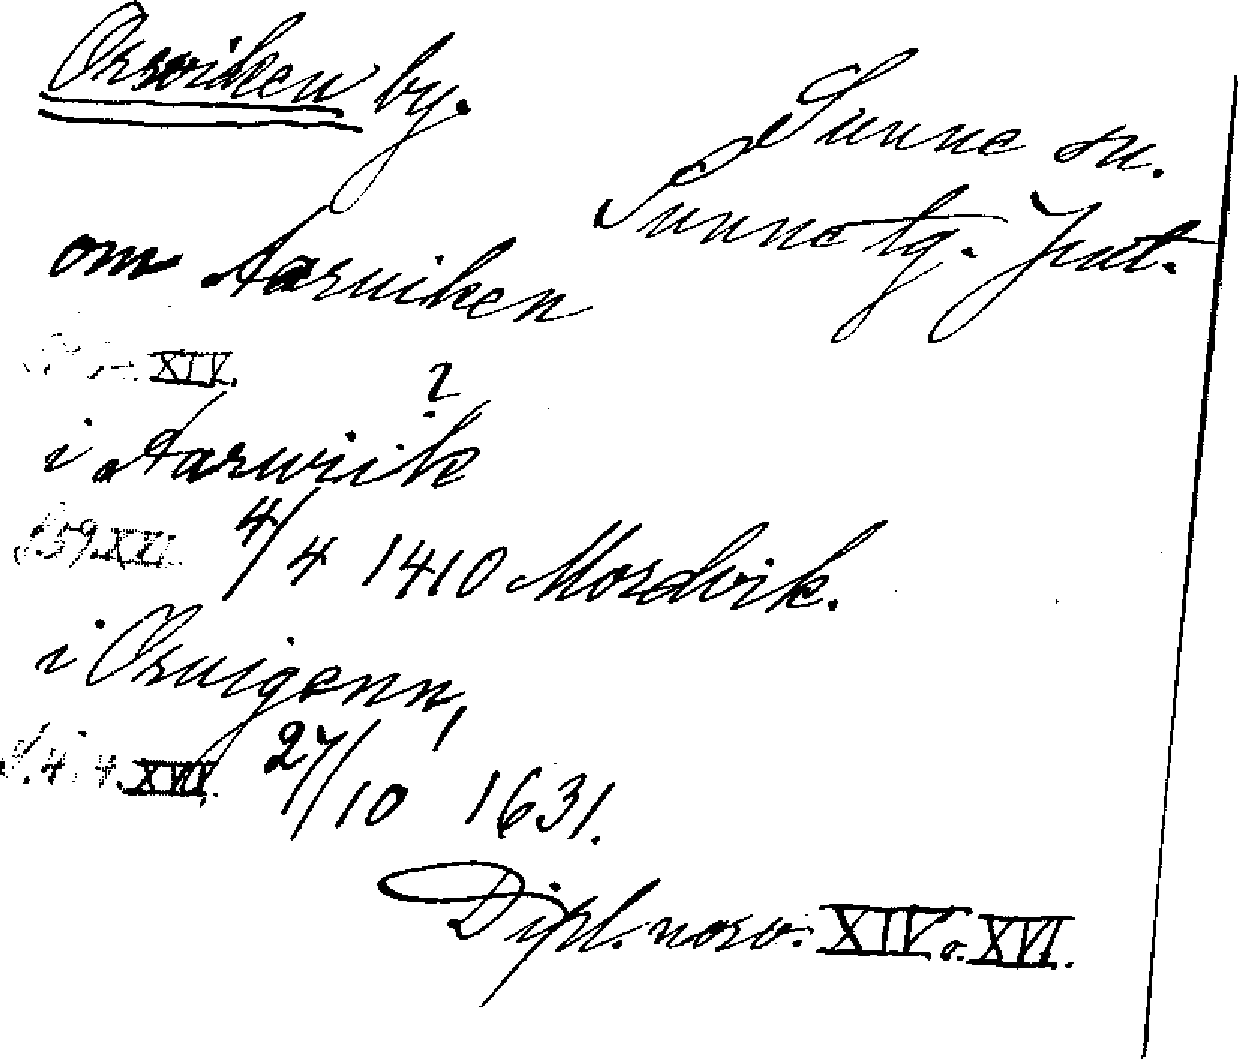 Orrviken by.
Sunne sn.
Sunne tg. Jmt.
om Aaruiken
XIV.
i Aarwiik ?
S 59 XVI. 4/4 1410 Mordvik.
i Oruigenn,
XVI. 27/10 1631.
Dipl. norv. XIV o. XVI.